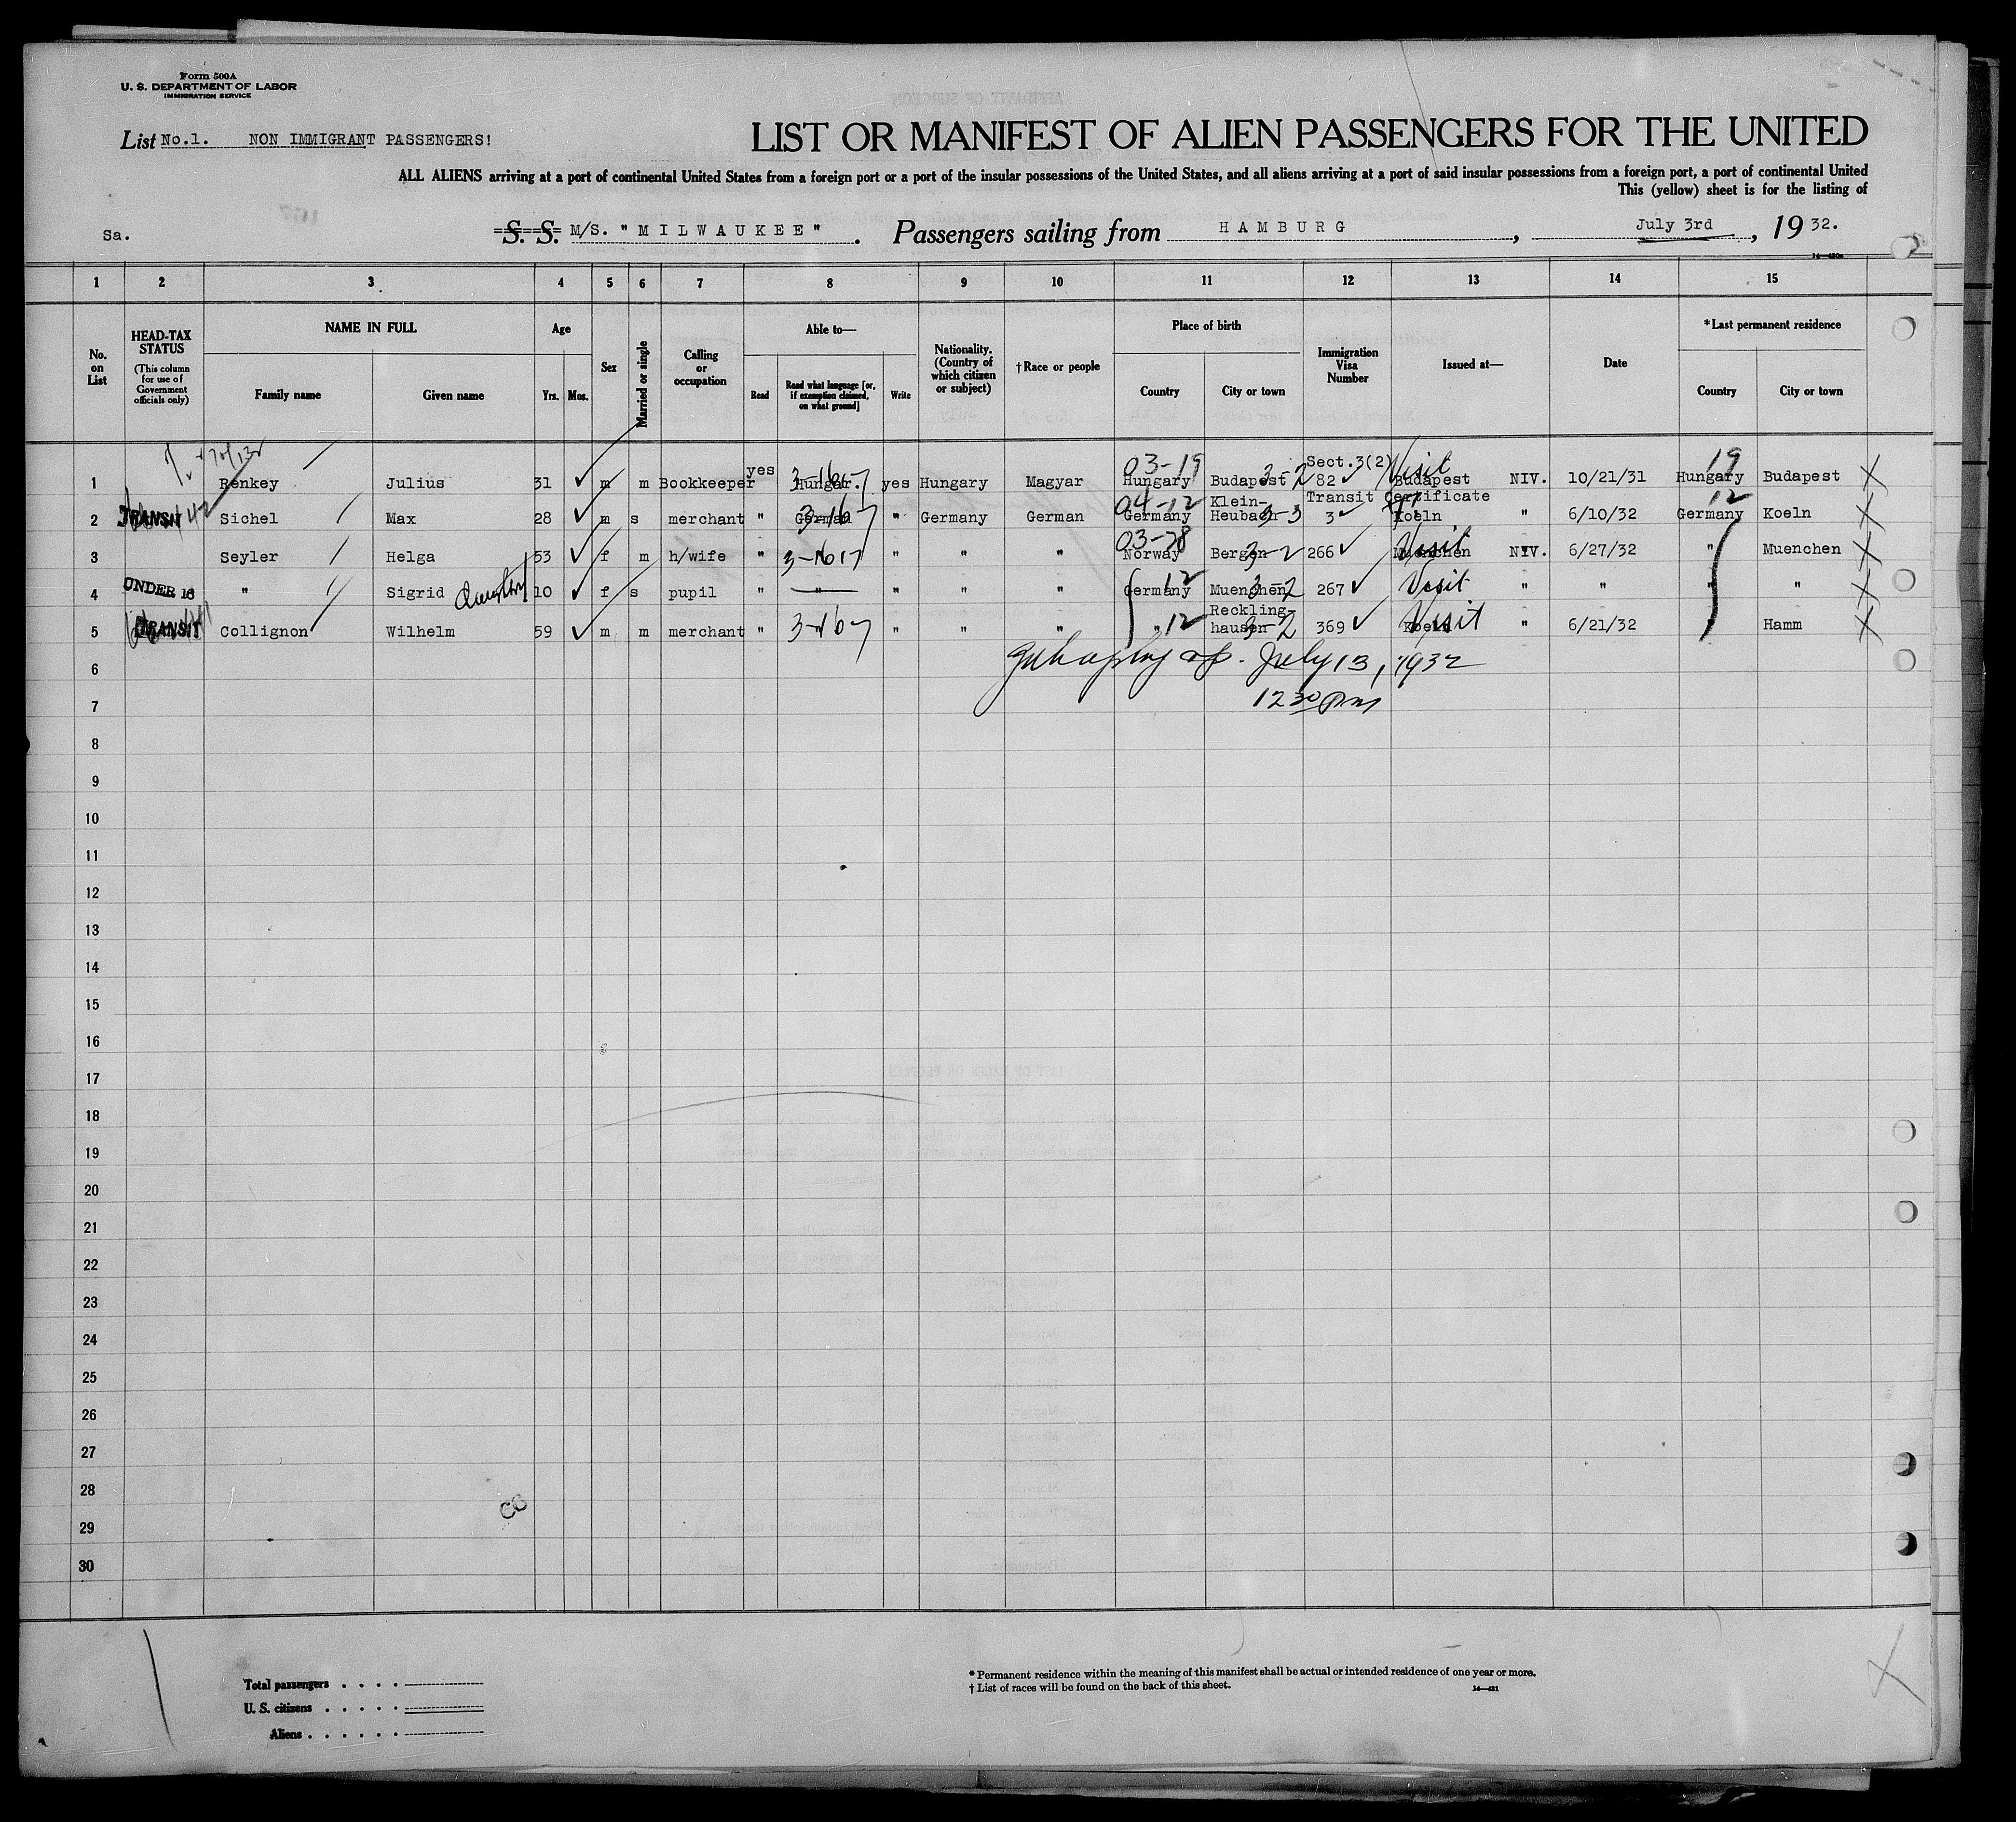 Form 500A
U. S. DEPARTMENT OF LABOR
IMMIGRATION SERVICE
List No.1. NON IMMIGRANT PASSENGERS!
LIST OR MANIFEST OF ALIEN PASSENGERS FOR THE UNITED
ALL ALIENS arriving at a port of continental United States from a foreign port or a port of the insular possessions of the United States, and all aliens arriving at a port of said insular possessions from a foreign port, a port of continental United
This (yellow) sheet is for the listing of
Sa. S. S. M/S. "MILWAUKEE" . Passengers sailing from HAMBURG , July 3rd , 19 32.
1 2 3 4 5 6 7 8 9 10 11 12 13 14 15
No. on List
HEAD-TAX STATUS (This column for use of Government officials only)
NAME IN FULL Family name Given name
Age Yrs. Mos.
Sex
Married or single
Calling or occupation
Able to— Read Read what language [or, if exemption claimed, on what ground] Write
Nationality. (Country of which citizen or subject)
†Race or people
Place of birth Country City or town
Immigration Visa Number
Issued at—
Date
*Last permanent residence Country City or town
1 Renkey Julius 31 m m Bookkeeper yes Hungar. 3-16 yes Hungary Magyar 03-19 Hungary Budapest 3-2 Sect.3(2) 82 Visit Budapest NIV. 10/21/31 19 Hungary Budapest
2 TRANSIT Sichel Max 28 m s merchant " German 3-16 " Germany German 04-12 Germany Klein-Heubach 3-3 Transit Certificate 3 Koeln " 6/10/32 12 Germany Koeln
3 Seyler Helga 53 f m h/wife " 3-16 " " " 03-78 Norway Bergen 3-2 266 Visit Muenchen NIV. 6/27/32 " Muenchen
4 UNDER 16 " Sigrid Daughter 10 f s pupil " " " " " Germany 12 Muenchen 3-2 267 Visit " " " "
5 TRANSIT Collignon Wilhelm 59 m m merchant " 3-16 " " " " 12 Recklinghausen 3-2 369 Visit Koeln " 6/21/32 Hamm
6 July 13, 1932
7 12 30 pm
8
9
10
11
12
13
14
15
16
17
18
19
20
21
22
23
24
25
26
27
28
29
30
Total passengers . . . .
U. S. citizens . . . . .
Aliens . . . . . .
* Permanent residence within the meaning of this manifest shall be actual or intended residence of one year or more.
† List of races will be found on the back of this sheet. 14—431